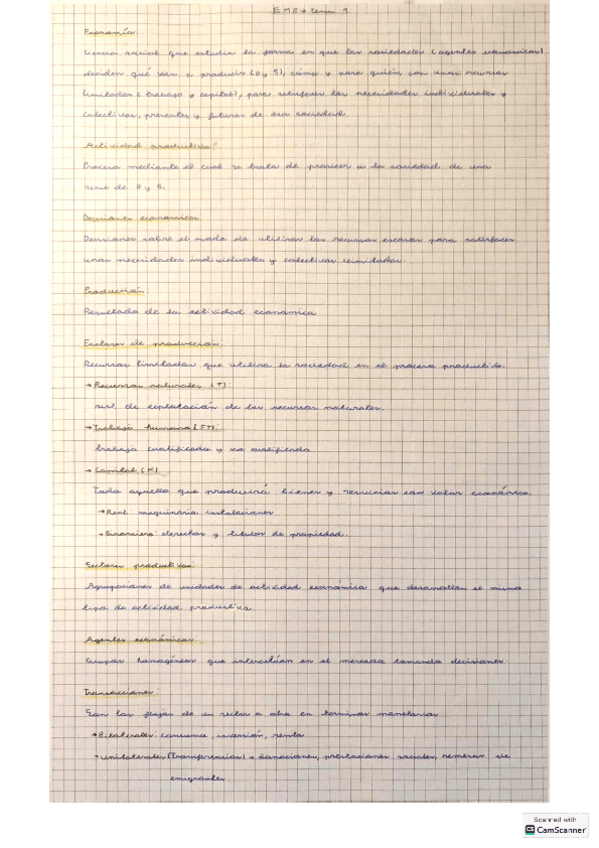 EME → tema 1
Economía:
Ciencia social que estudia la forma en que las sociedades (agentes económicos)
deciden qué van a producir (B y S), cómo y para quién, con unos recursos
limitados (trabajo y capital), para satisfacer las necesidades individuales y
colectivas, presentes y futuras de esa sociedad.
Actividad productiva:
Proceso mediante el cual se trata de proveer a la sociedad de una
serie de B y S.
Decisiones económicas:
Decisiones sobre el modo de utilizar los recursos escasos para satisfacer
unas necesidades individuales y colectivas ilimitadas.
Producción:
Resultado de la actividad económica
Factores de producción:
Recursos limitados que utiliza la sociedad en el proceso productivo.
→ Recursos naturales (T):
de explotación de los recursos naturales.
→ Trabajo humano (FT):
trabajo cualificado y no cualificado
→ Capital (K)
Todo aquello que producirá bienes y servicios con valor económico.
→ Real: maquinaria instalaciones
→ Financiero: derechos y títulos de propiedad.
Sectores productivos:
Agrupaciones de unidades de actividad económica que desarrollan el mismo
tipo de actividad productiva.
Agentes económicos:
Grupos homogéneos que interactúan en el mercado tomando decisiones
Transacciones:
Son los flujos de un sector a otro en términos monetarios
→ Bilaterales: consumo, inversión, renta
→ Unilaterales (Transferencias) = donaciones, prestaciones sociales, remesas de
emigrantes.
Scanned with
CamScanner